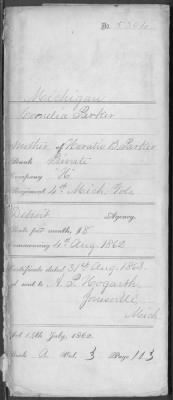 No.
Michigan
Cornelia Parker
Mother of Horatio B. Parker
Rank Private
Company "K"
Regiment 4th Mich. Vols
Detroit Agency.
Rate per month, $8
Commencing 4th Aug. 1862
Certificate dated 31st Aug. 1863.
and sent to H. L. Hogarth,
Jonesville,
Mich
Act 14th July, 1862.
Book A Vol. 3 Page 113